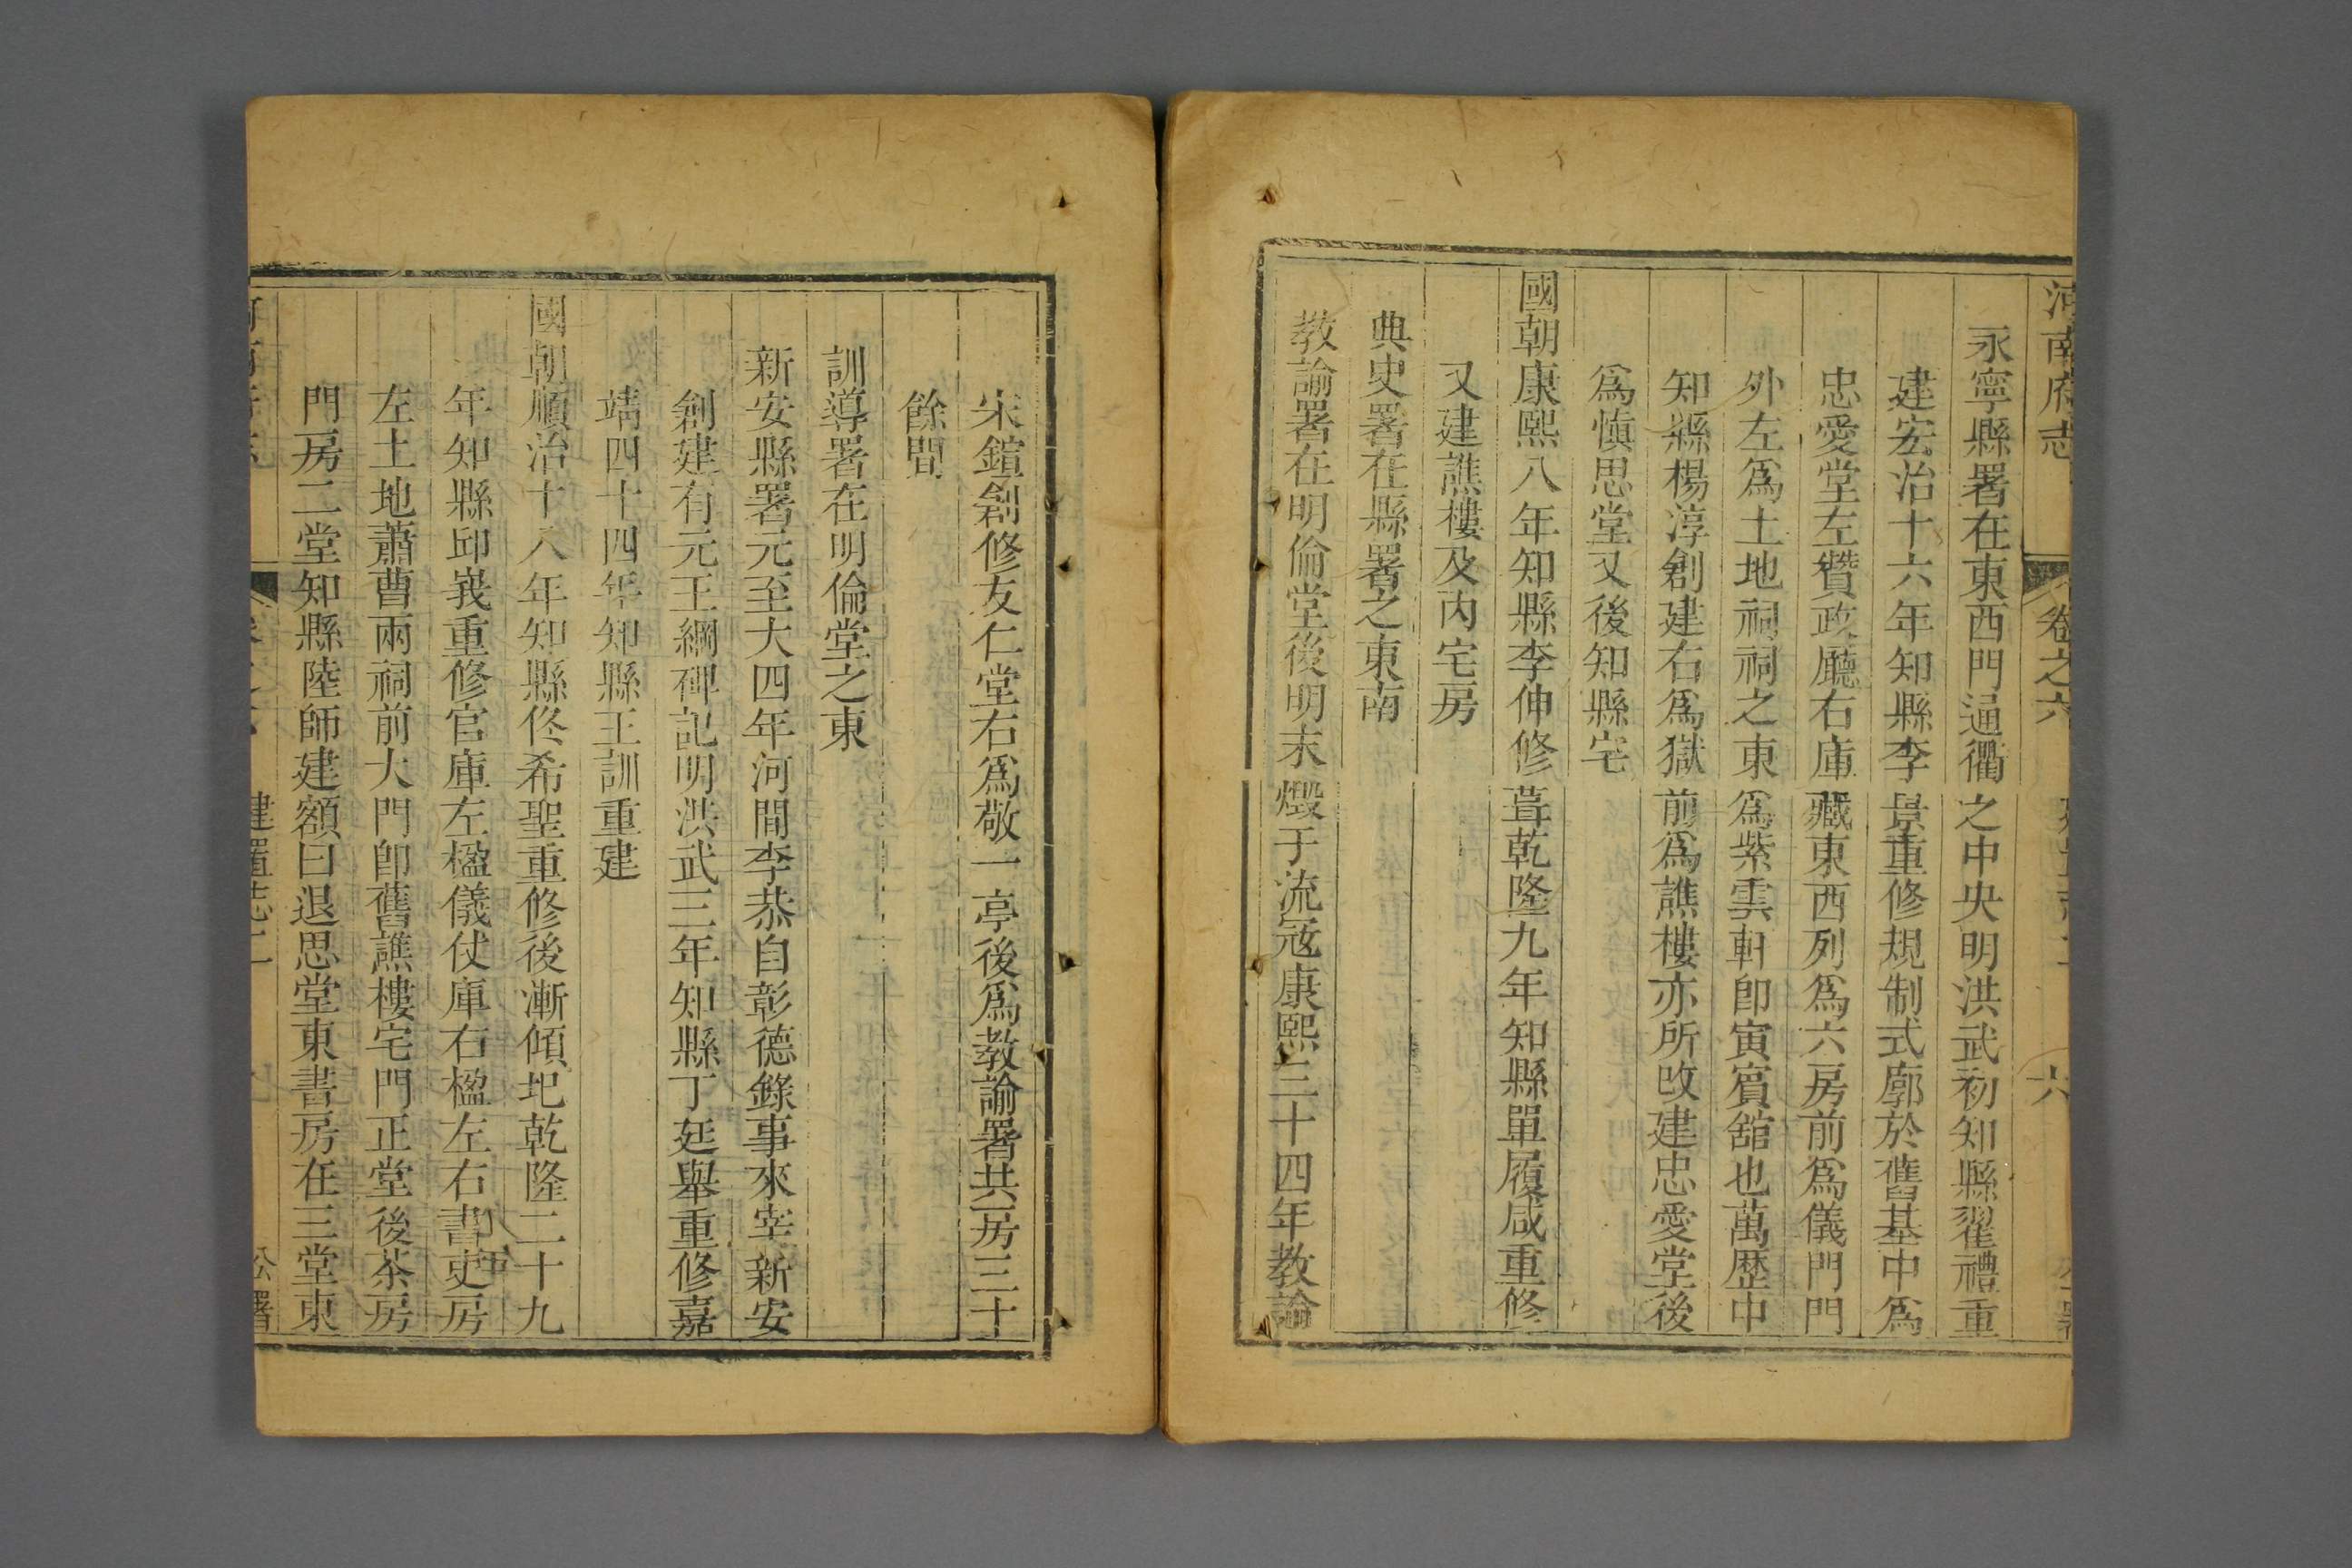 河南府志 卷之六 六
永寧縣署在東西門通衢之中央明洪武初知縣翟禮重
建宏治十六年知縣李景重修規制式廓於舊基中為
忠愛堂左贊政廳右庫藏東西列為六房前為儀門門
外左為土地祠祠之東為紫雲軒卽寅賓舘也萬歷中
知縣楊淳創建右為獄前為譙樓亦所改建忠愛堂後
為慎思堂又後知縣宅
國朝康熙八年知縣李伸修葺乾隆九年知縣單履咸重修
又建譙樓及內宅房
典史署在縣署之東南
教諭署在明倫堂後明末燬于流寇康熙三十四年教諭
宋鍹創修友仁堂右為敬一亭後為教諭署共房三十
餘間
訓導署在明倫堂之東
新安縣署元至大四年河間李恭自彰德錄事來宰新安
創建有元王綱碑記明洪武三年知縣丁廷舉重修嘉
靖四十四年知縣王訓重建
國朝順治十八年知縣佟希聖重修後漸傾圮乾隆二十九
年知縣邱峩重修官庫左楹儀仗庫右楹左右書吏房
左土地蕭曹兩祠前大門卽舊譙樓宅門正堂後茶房
門房二堂知縣陸師建額曰退思堂東書房在三堂東
建置志二 公署